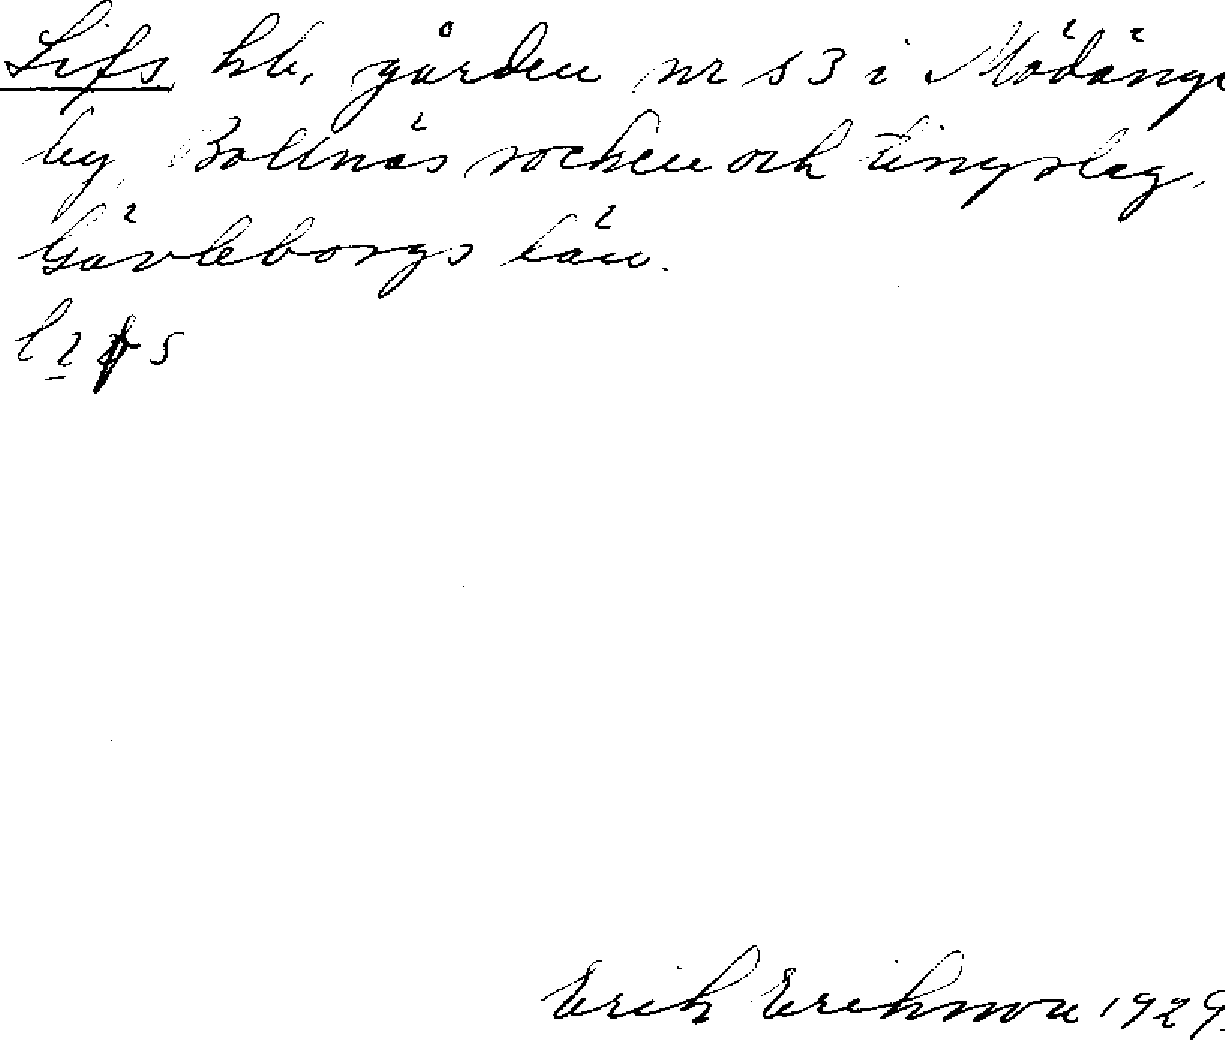 Lifs hb. gården nr s 3 i Mödängs
by, Bollnäs socken och tingslag,
Gävleborgs län.
Erik Eriksson 1929.